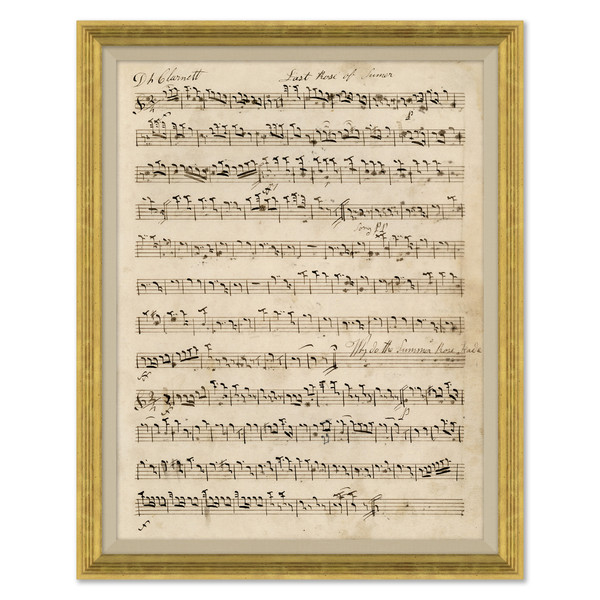 D h Clarnett Last Rose of Sumer
Song PP
Why do the Summer Rose Fade